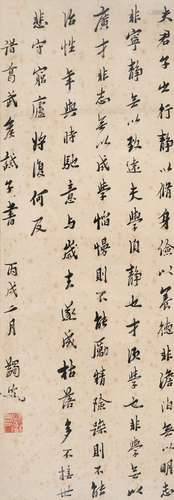 夫君子之行靜以脩身儉以養德非澹泊無以明志
非寧靜無以致遠夫學須靜也才須學也非學無以
廣才非志無以成學慆慢則不能勵精險躁則不能
治性年與時馳意與歲去遂成枯落多不接世
悲守窮廬將復何及
諸葛武侯誡子書 丙戌二月 蠲叟